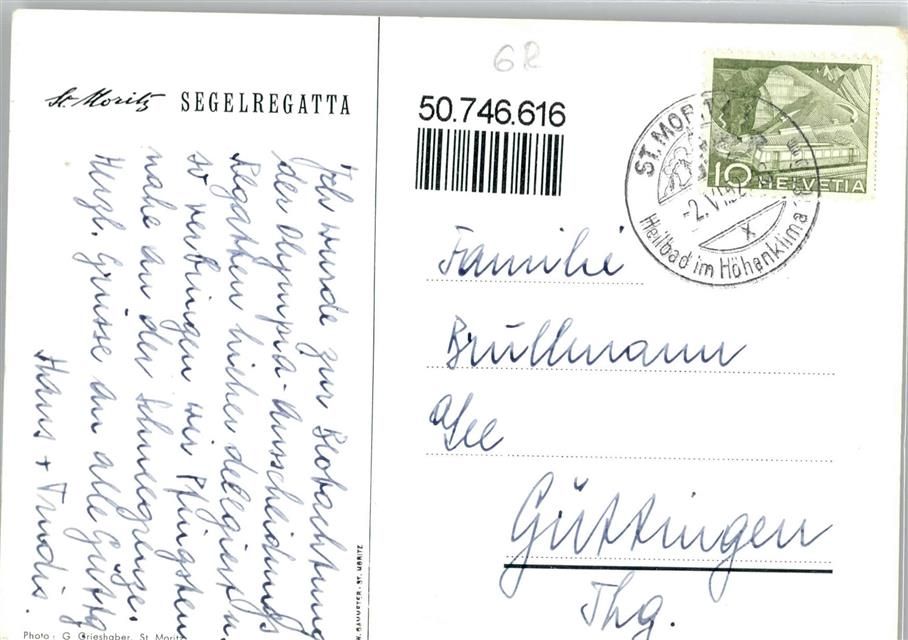 St. Moritz SEGELREGATTA
Ich wurde zur Beobachtung
der Olympia-Ausscheidungs
Regatten hieher delegiert u.
so verbringen wir Pfingsten
nahe an der Schneegrenze.
Herzl. Grüsse an alle Güttg
Hans + Trudis.
Photo: G Grieshaber, St. Moritz
GAMMETER - ST. MORITZ
6R
50.746.616
10 HELVETIA
ST. MORITZ
-2.VI.52
X
Heilbad im Höhenklima
Familie
Brüllmann
See
Güttingen
Thg.